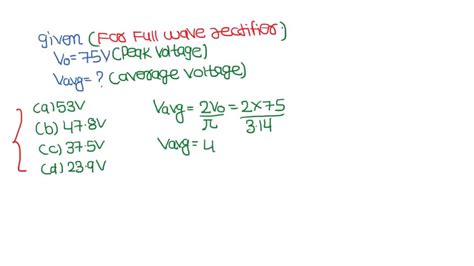 given (For Full wave rectifier:)
Vo = 75V (Peak Voltage)
Vavg = ? (average voltage)
(a) 53V
(b) 47.8V
(c) 37.5V
(d) 23.9V
Vavg = 2Vo/π = 2×75/3.14
Vavg = 4